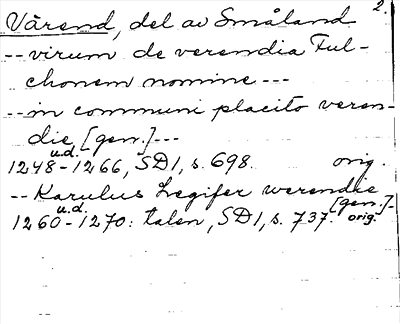 2.
Värend, del av Småland
-- virum de verendia Ful-
chonem nomine ---
-- in communi placito veren-
die [gen.] ---
u.d.
1248-1266, SD1, s. 698. orig.
-- Karulus Legifer werendie
[gen.]-
u.d.
1260-1270: talen, SD1, s. 737. orig.